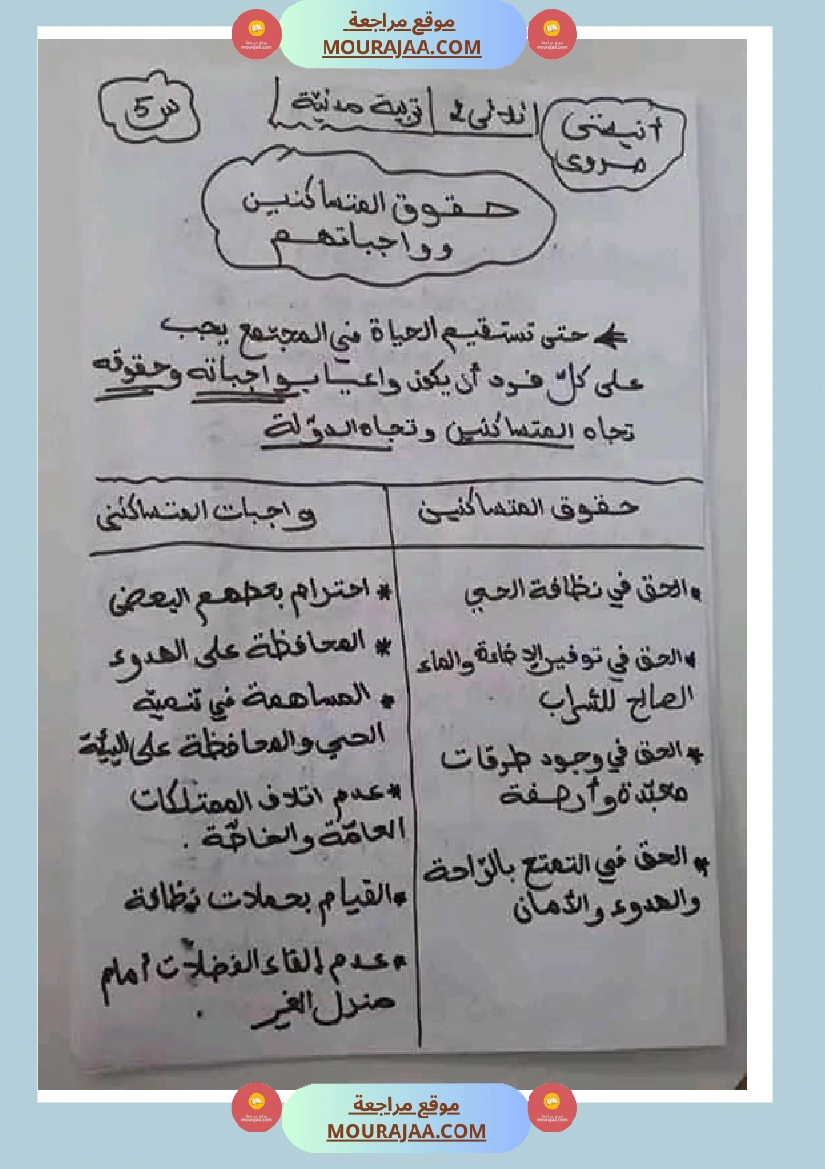 موقع مراجعة
MOURAJAA.COM
أنيستي
مروى
الثلاثي 2
تربية مدنيّة
س5
حقوق المتساكنين
وواجباتهم
حتى تستقيم الحياة في المجتمع يجب
على كلّ فرد أن يكون واعيا بواجباته وحقوقه
تجاه المتساكنين وتجاه الدوّلة
حقوق المتساكنين
* الحق في نظافة الحي
* الحق في توفير الإضاءة والماء
الصالح للشراب
* الحق في وجود طرقات
معبّدة وأرصفة
* الحق في التمتع بالرّاحة
والهدوء والأمان
واجبات المتساكنين
* احترام بعضهم البعض
* المحافظة على الهدوء
* المساهمة في تنمية
الحي والمحافظة على البيئة
* عدم اتلاف الممتلكات
العامّة والخاصّة .
* القيام بحملات نظافة
* عدم إلقاء الفضلات أمام
منزل الغير .
موقع مراجعة
MOURAJAA.COM